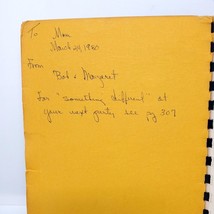 To Mom
March 29, 1980
From
Bob & Margaret
For "something different" at
your next party see pg 307